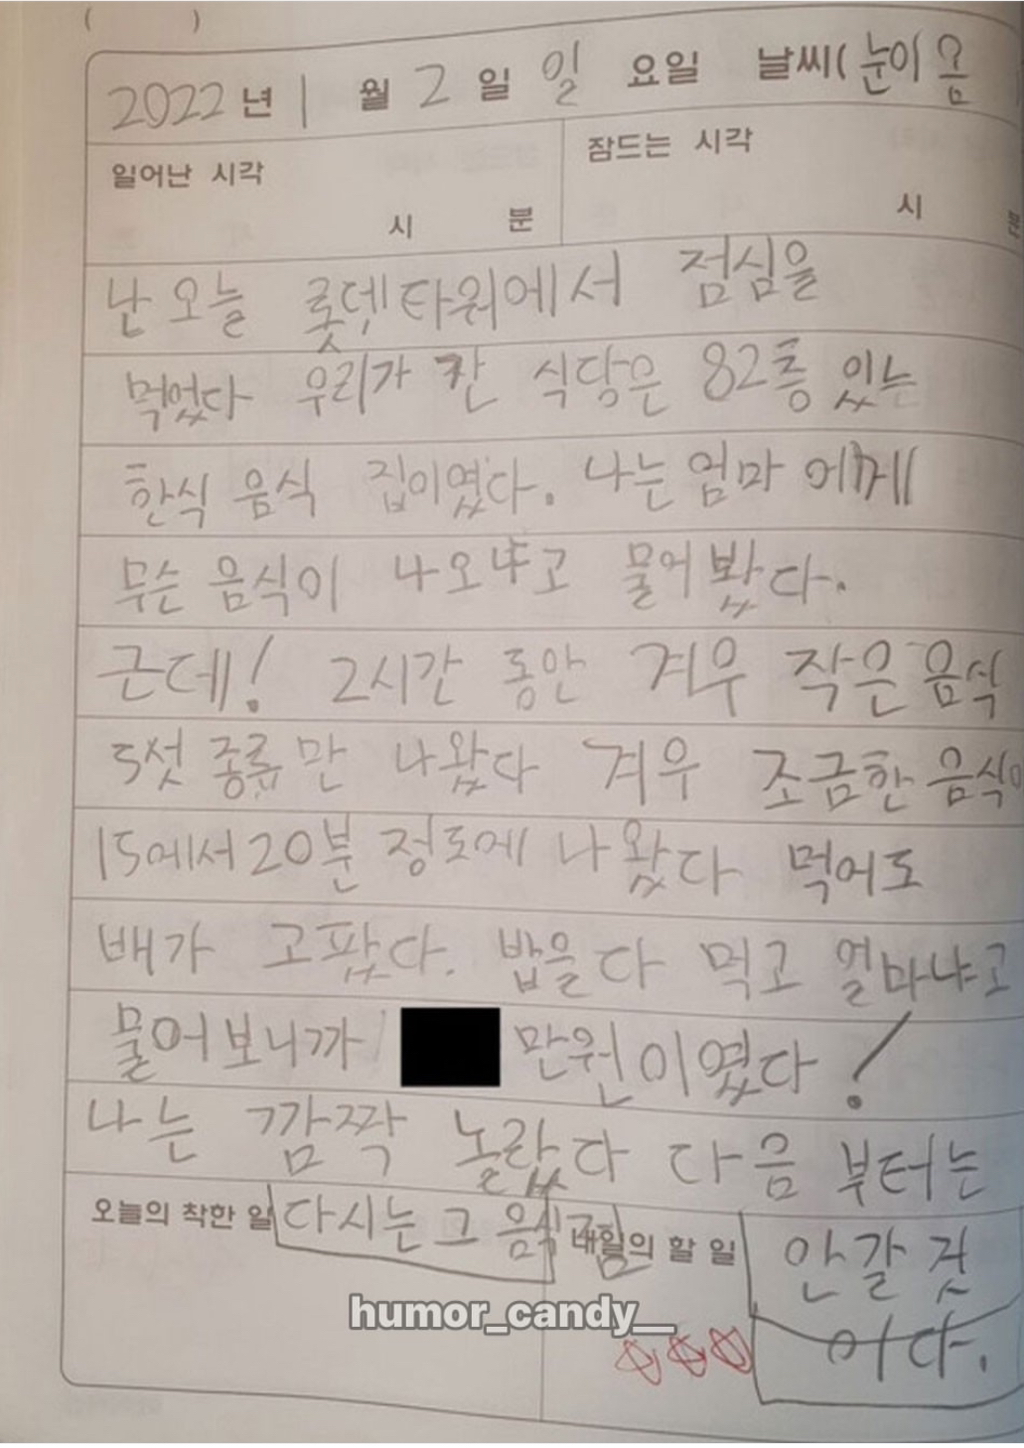 (          )
2022 년 1 월 2 일 일 요일 날씨(눈이 옴
일어난 시각
시 분
잠드는 시각
시 분
난 오늘 롯뎃타워에서 점심을
먹었다 우리가 간 식당은 82층 있는
한식 음식 집이였다. 나는 엄마 에게
무슨 음식이 나오냐고 물어봤다.
근데! 2시간 동안 겨우 작은 음식
5섯 종류만 나왔다 겨우 조금한 음식이
15에서20분 정도에 나왔다 먹어도
배가 고팠다. 밥을 다 먹고 얼마냐고
물어보니까 만원이였다!
나는 깜짝 놀랐다 다음 부터는
오늘의 착한 일 다시는 그 음식집 내일의 할 일 안갈 것
이다.
humor_candy__